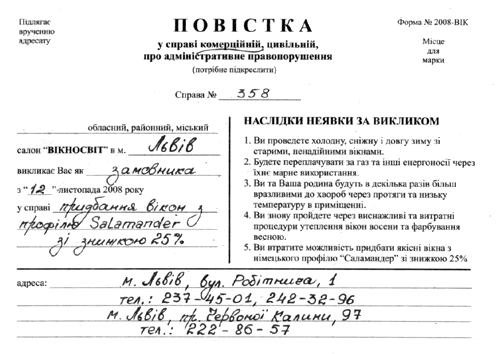 Підлягає
врученню
адресату
ПОВІСТКА
у справі комерційній, цивільній,
про адміністративне правопорушення
(потрібне підкреслити)
Форма № 2008-ВІК
Місце
для
марки
Справа № 358
обласний, районний, міський
салон "ВІКНОСВІТ" в м. Львів
викликає Вас як замовника
з "12" листопада 2008 року
у справі придбання вікон з
профілю Salamander
зі знижкою 25%
НАСЛІДКИ НЕЯВКИ ЗА ВИКЛИКОМ
1. Ви проведете холодну, сніжну і довгу зиму зі
старими, ненадійними вікнами.
2. Будете переплачувати за газ та інші енергоносії через
їхнє марне використання.
3. Ви та Ваша родина будуть в декілька разів більш
вразливими до хвороб через протяги та низьку
температуру в приміщенні.
4. Ви знову пройдете через виснажливі та витратні
процедури утеплення вікон восени та фарбування
весною.
5. Ви втратите можливість придбати якісні вікна з
німецького профілю "Саламандер" зі знижкою 25%
адреса: м. Львів, вул. Робітнича, 1
тел.: 237-45-01, 242-32-96
м. Львів, пр. Червоної Калини, 97
тел.: 222-86-57